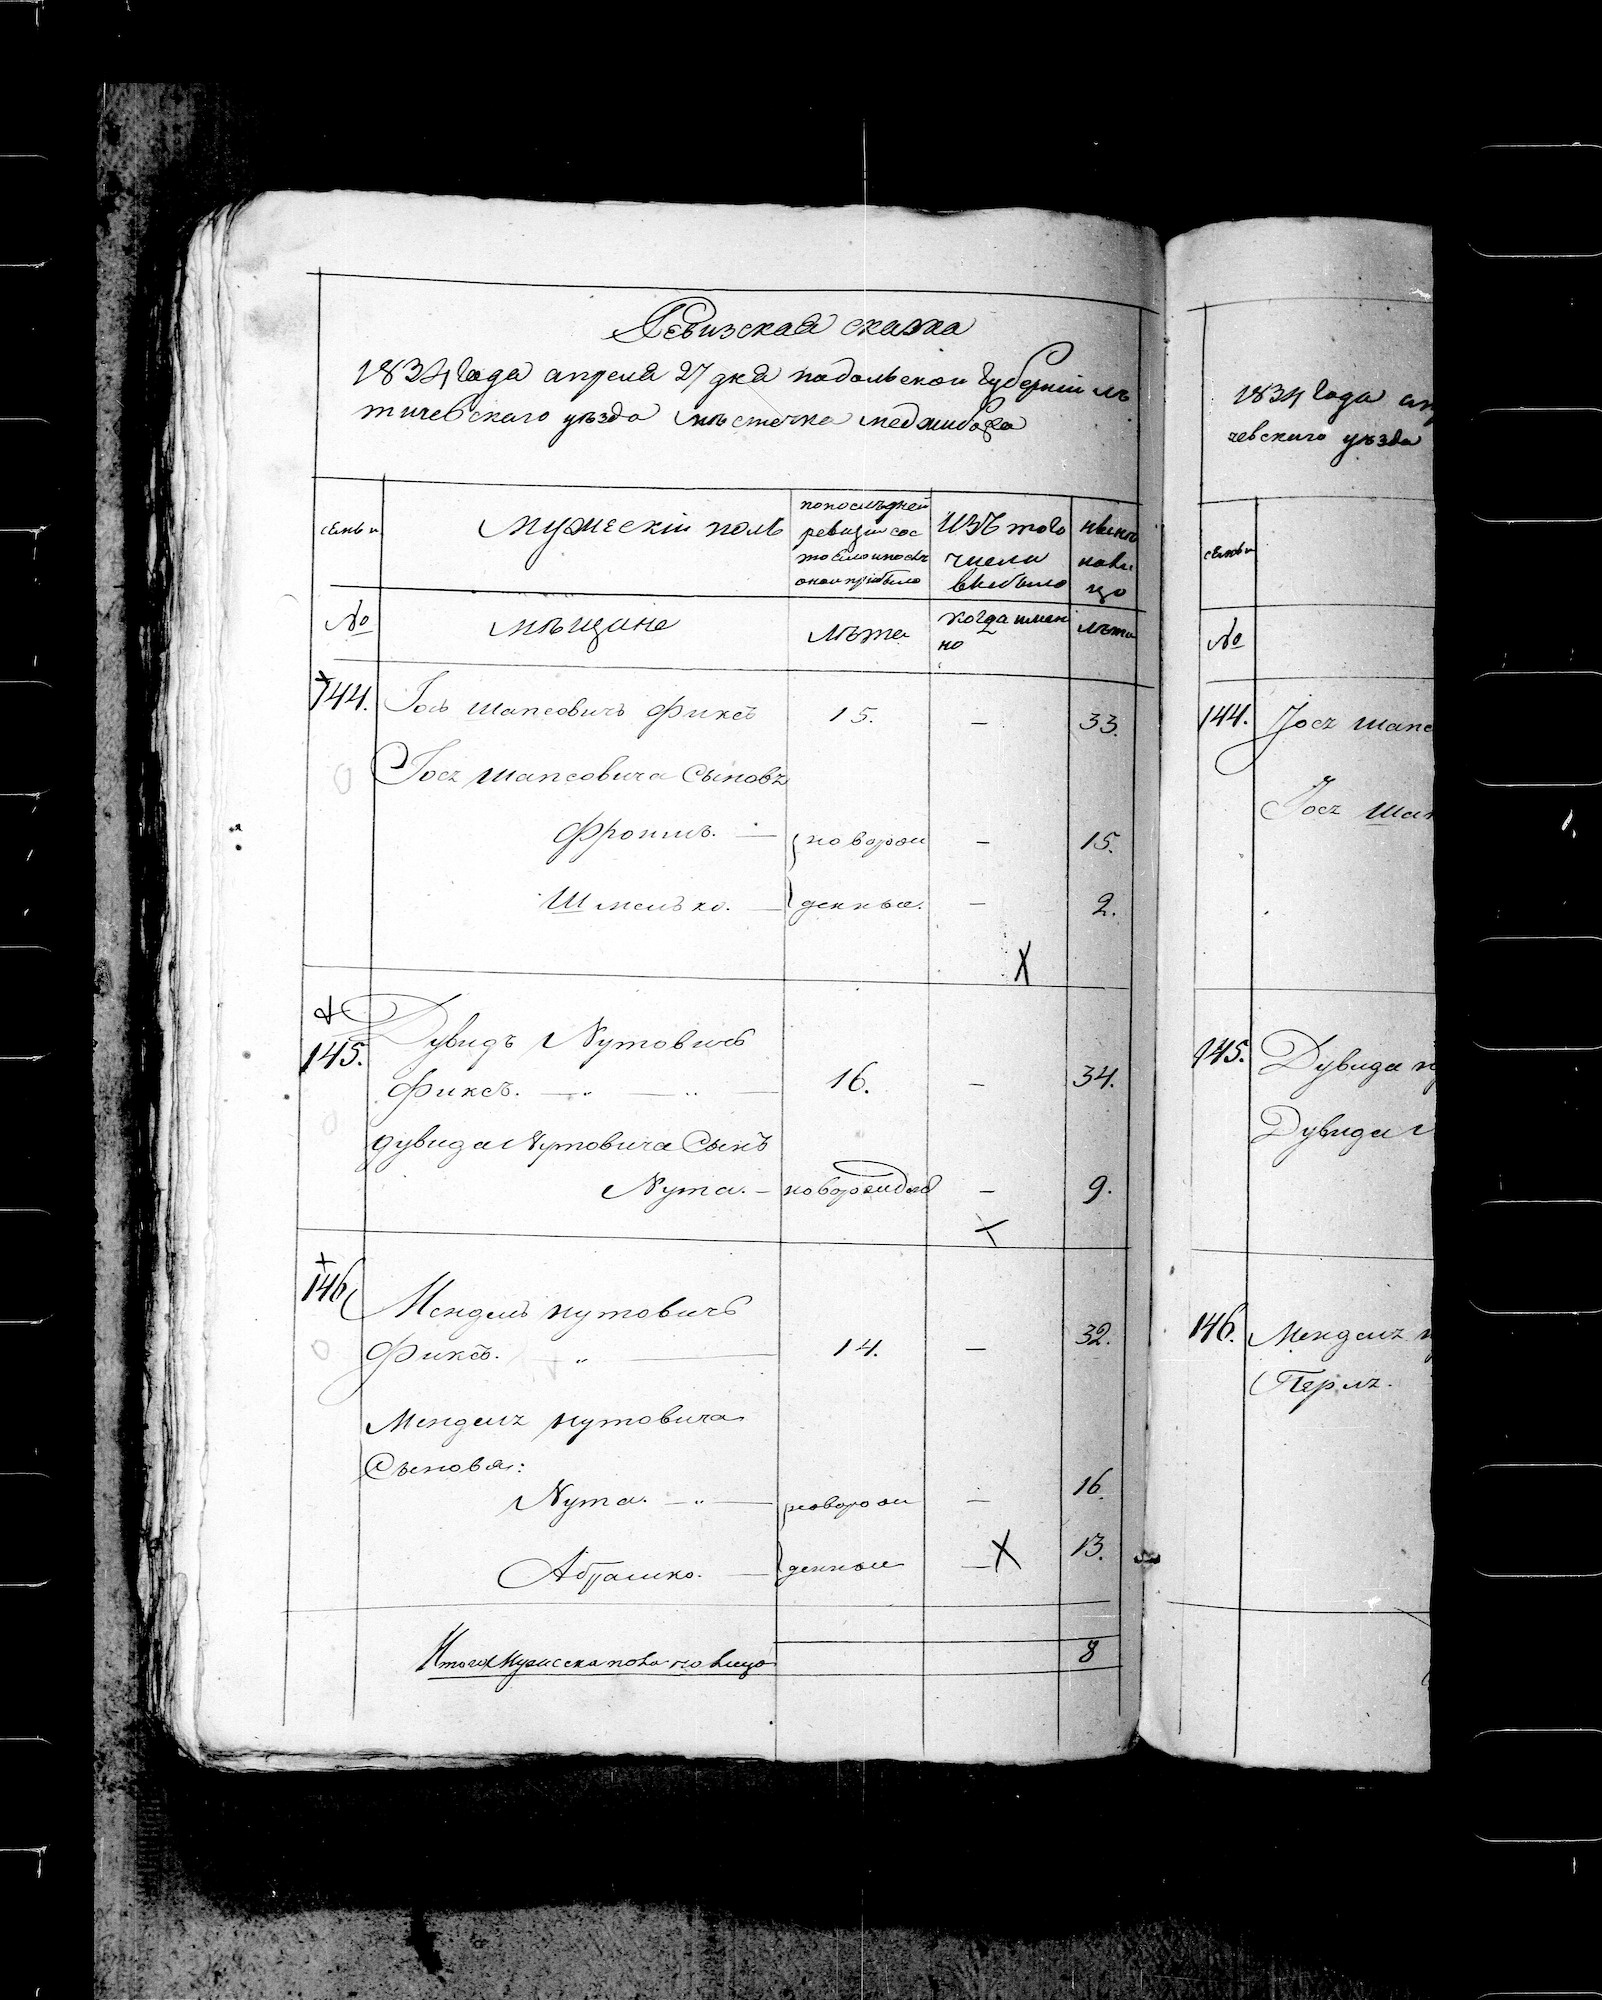 Ревизская сказка
1834 Года апреля 27 дня подольской губернии ль
тичевскаго уѣзда мѣстечка меджибожа
семьи
мужескій полъ
попослѣдней
ревизіи сос
тояло ипослѣ
оной прибыло
изъ того
числа
выбыло
нынѣ
нали
цо
№
мѣщане
лѣта
когда имен
но
лѣта
144.
Іось шапсовичъ Фиксъ
15.
—
33.
Іось шапсовича Сыновъ
Фроимъ. —
новорож
—
15.
Шмелько. —
денные.
—
2.
145.
Дувидъ Нутовичъ
Фиксъ. — „ — „ —
16.
—
34.
дувида Нутовича Сынъ
Нута. —
новорожден
—
9.
146
Мендель нутовичъ
Фиксъ. — „ —
14.
—
32.
Мендель нутовича
Сыновья:
Нута. — „ —
новорож
—
16.
Абрамко. —
денные
—
13.
Итого мужеска пола на лицо
8
1834 Года ап
чевскаго уѣзда
семьи
№
144.
Іось шапс
Іось шап
145.
Дувида н
Дувида
146.
Мендель н
Перль.